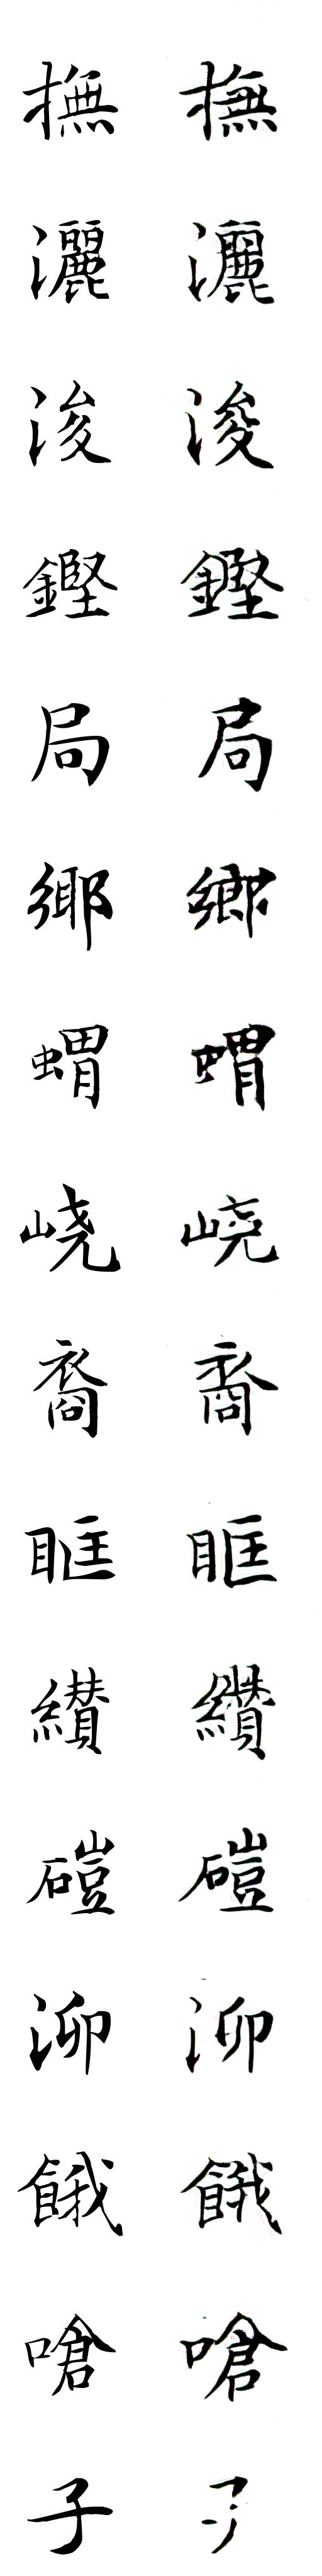 撫 撫
灑 灑
浚 浚
鏗 鏗
局 局
鄉
蝟 蝟
峣 峣
裔 裔
眶 眶
纘 纘
磑 磑
泖 泖
餓 餓
嗆 嗆
子